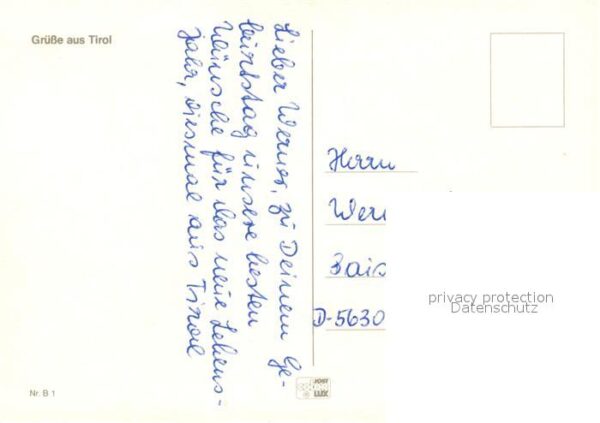 Grüße aus Tirol
Lieber Werner, zu Deinem Ge-
burtstag unsere besten
Wünsche für das neue Lebens-
jahr, diesmal aus Tirol
Herrn
Wer
Bais
D-5630
privacy protection
Datenschutz
Nr. B 1
LUX